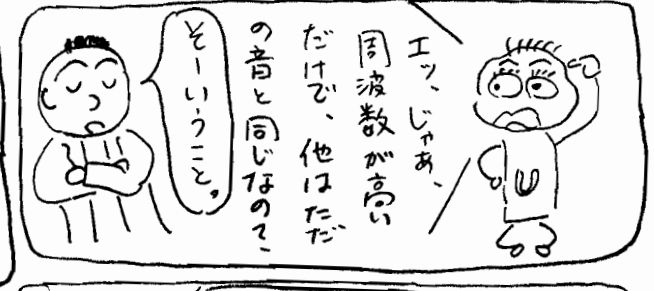 エッ、じゃあ、
周波数が高い
だけで、他はただ
の音と同じなの?、
そーいうこと。
U